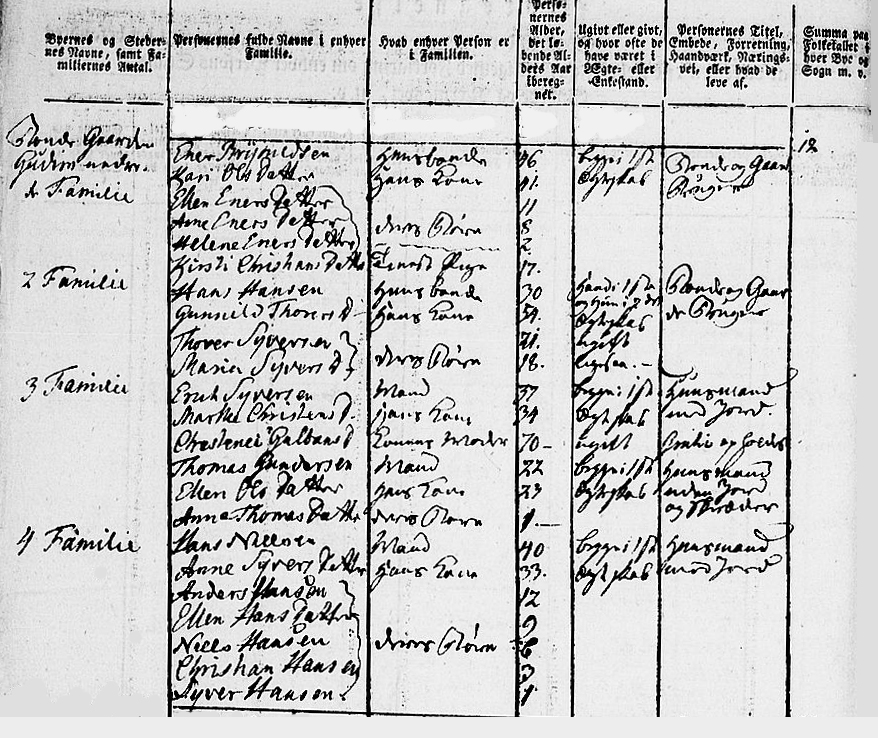 Byernes og Steder-
nes Navne, samt Fa-
miliernes Antal.
Personernes fulde Navne i enhver
Familie.
Hvad enhver Person er
i Familien.
Perso-
nernes
Alder,
det lø-
bende Al-
ders Aar
iberegnet.
Ugivt eller givt,
og hvor ofte de
have været i
Ægte- eller
Enkestand.
Personernes Titel,
Embede, Forretning,
Haandværk, Nærings-
vei, eller hvad de
leve af.
Summa paa
Folketallet i
hver Bye og
Sogn m. v.
Bonde Gaarden
Gudim nedre. 12
1 Familie
Ener Huusbonde 46 begge i 1ste Bonde og Gaard
Kari Ols Datter Hans Kone 41. Egteskab Bruger
Ellen Eners Datter 11
Ane Eners Datter deres Børn 8
Helene Eners Datter 2
Kirsti Christians Datter Tieneste Pige 17.
2 Familie
Hans Hansen Huusbonde 30 Hand i 1ste Bonde og Gaar
Gunnild Thorers D Hans Kone 54. og Hun i 2det Egteskab de Bruger
Thover Syversen 21. ugift
Maria Syvers D deres Børn 18. ligesaa.
3 Familie
Erich Syversen Mand 37 begge i 1ste Huusmand
Marthe Christens D. Hans Kone 34 Egteskab med Jord.
Konens Moder 70 ugift
Thomas Gundersen Mand 22 begge i 1ste Huusmand
Ellen Ols Datter Hans Kone 23 Egteskab uden Jord
Anne Thomas Datter deres Barn 1. og Skræder
4 Familie
Hans Nielsen Mand 40 begge i 1ste Huusmand
Anne Syvers Datter Hans Kone 33. Egteskab med Jord
Anders Hansen 12
Ellen Hans Datter 9
Niels Hansen deres Børn 6
Christian Hansen 3
Syver Hansen 1